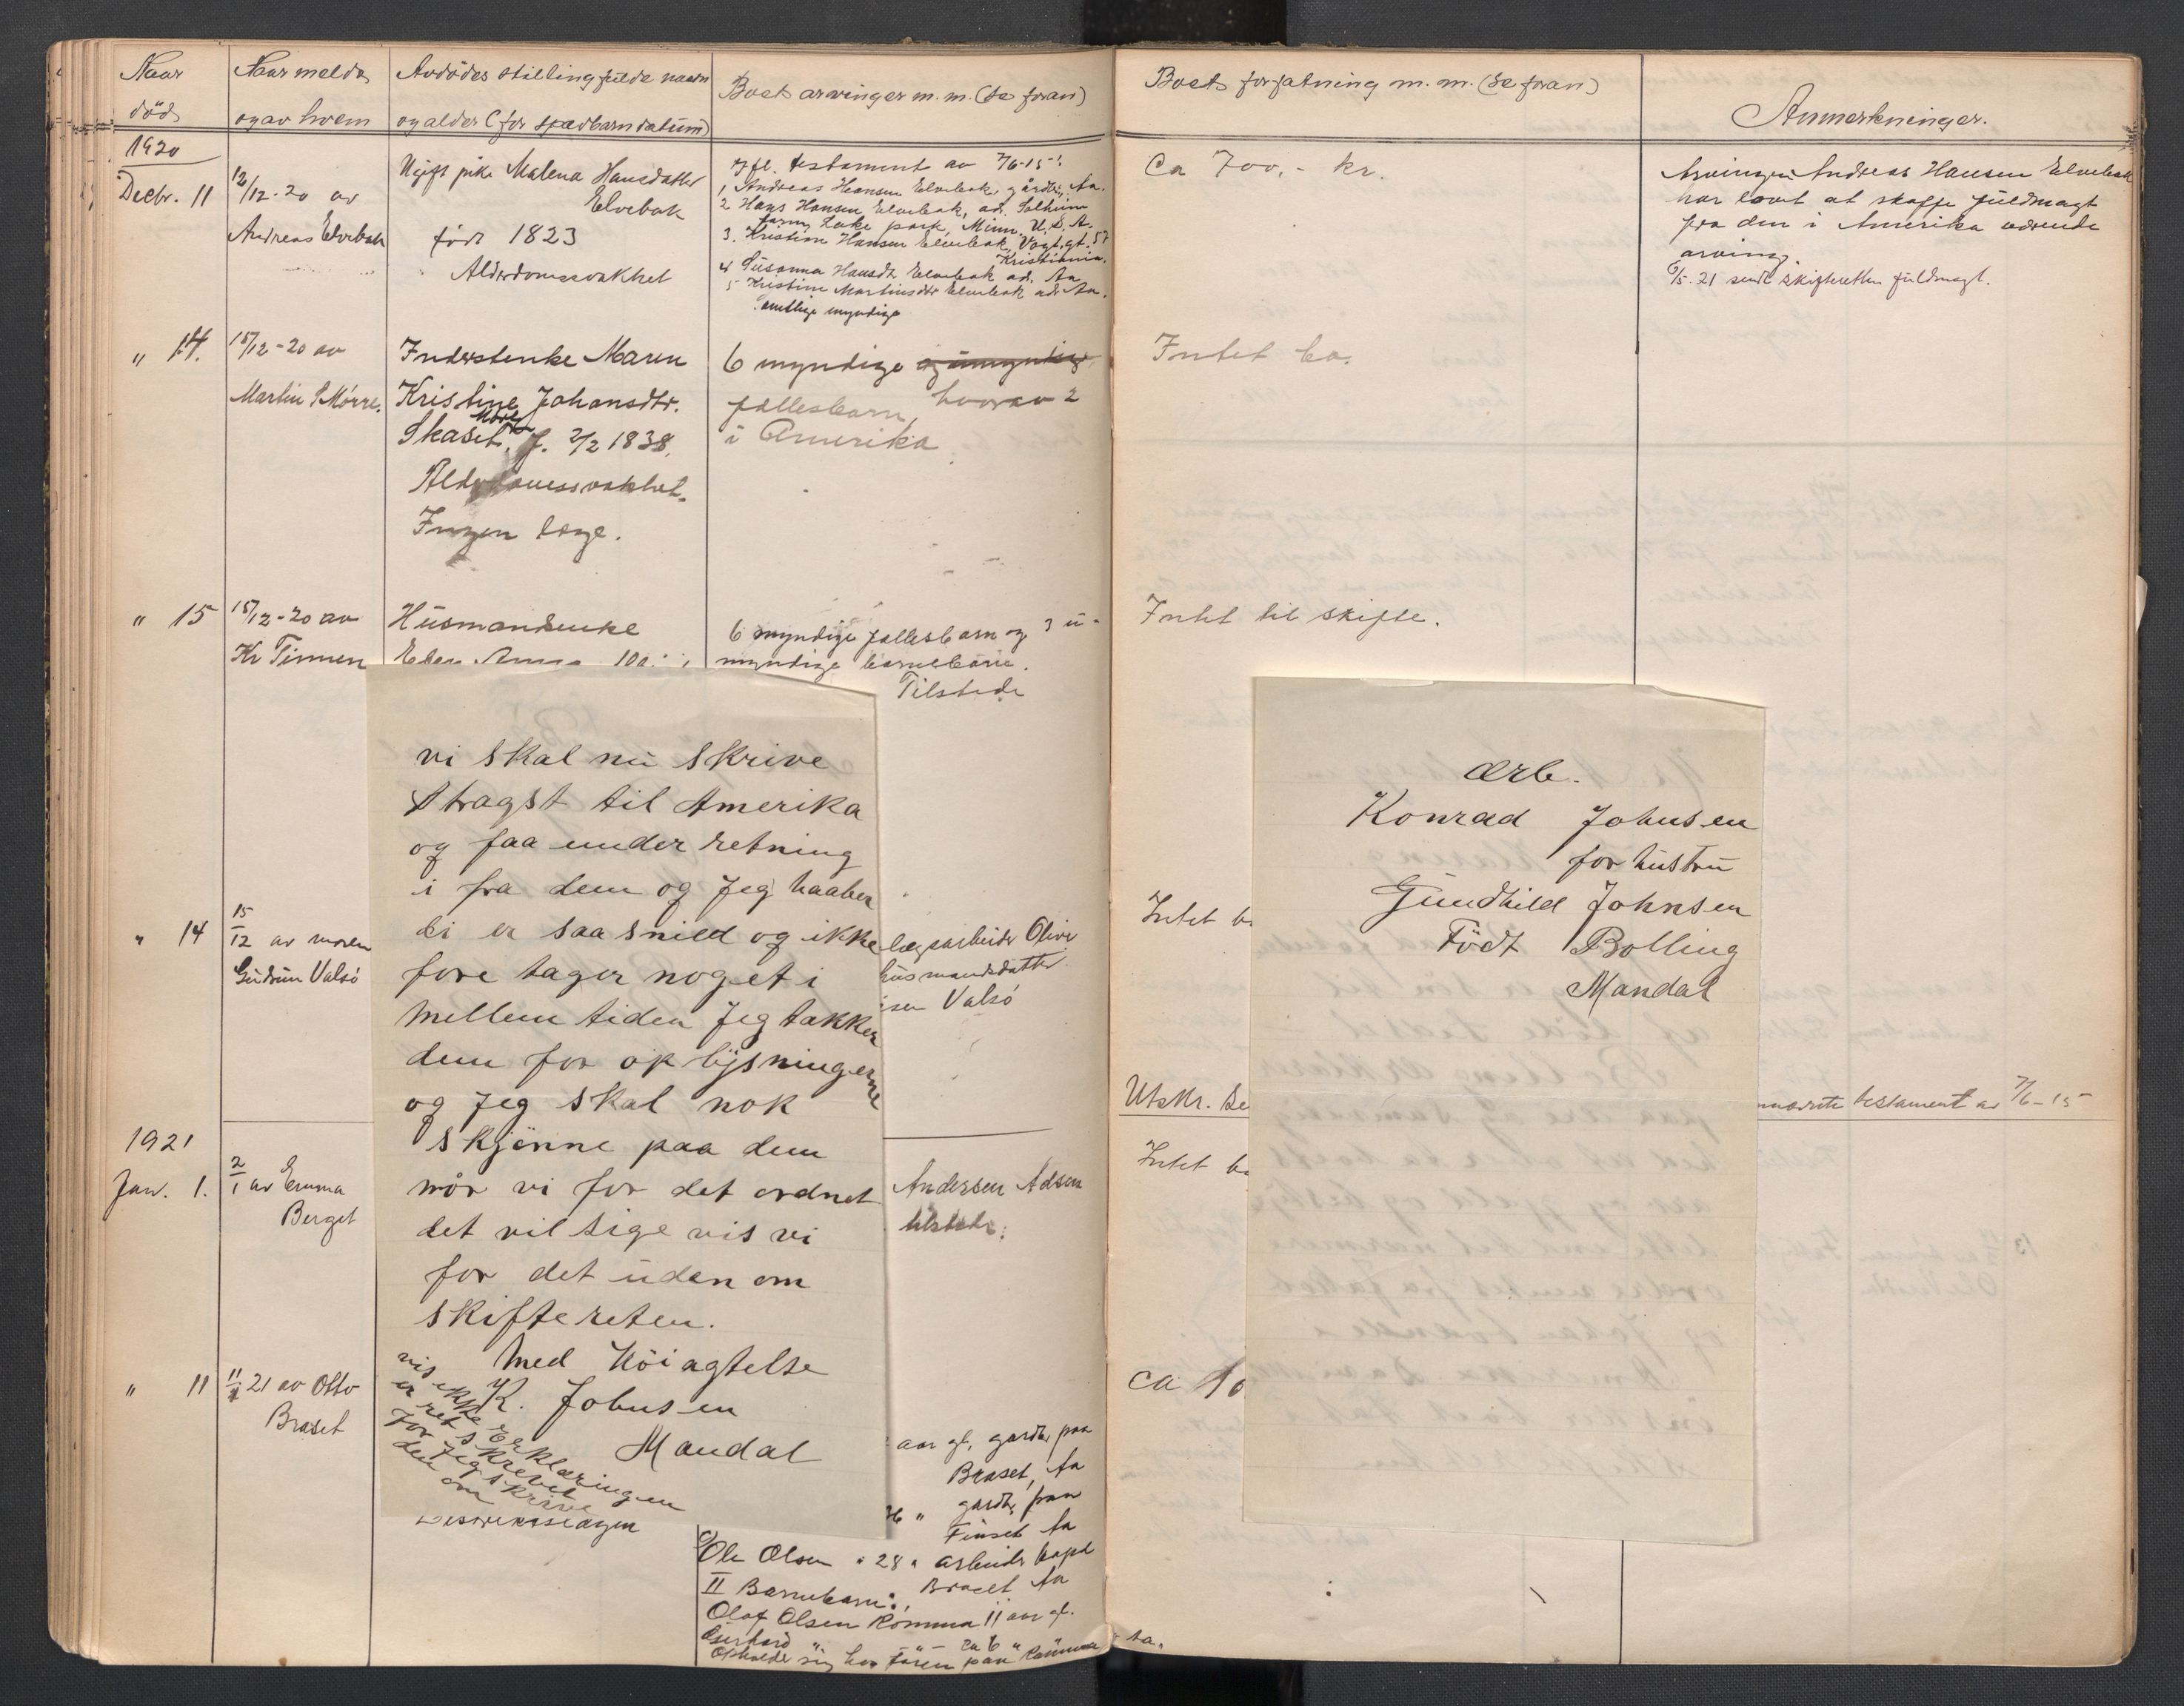 Naar
död
Naar meldt
og av hvem
Avdödes stilling fulde navn
og alder (for spædbarn datum)
Boets arvinger m. m. (se foran)
Boets forfatning m. m. (se foran)
Anmerkninger.
1920
Decbr. 11
12/12-20 av
Andreas Elvebak
Ugift pike Malena Hansdatter
Elvebak
född 1823
Alderdomssvakhet
Jfl. testament av 7/6-15:
1, Andreas Hansen Elvebak, gårdbr, Aa.
2 Hans Hansen Elvebak, ad. Solheim
farm, Lake park, Minn, U. S. A.
3. Kristian Hansen Elvebak, Vogtgt. 57
Kristiania.
4 Susanna Hansdt Elvebak ad. Aa
5 Kristine Martinsdtr Elvebak adr Aa.
samtlige myndige
Ca 700,- kr.
Arvingen Andreas Hansen Elvebak
har lovt at skaffe fuldmagt
fra den i Amerika værende
arving.
9/5-21 sendt skifteretten fuldmagt.
" 14.
15/12-20 av
Martin S Mørre.
Inderstenke Maren
Kristine Johansdtr.
Mørre
Skaset. f. 2/2 1838.
Alderdomssvakhet.
Ingen læge.
6 myndige og umyndige
fællesbarn, hvorav 2
i Amerika
Intet bo.
" 15
15/12-20 av
Kr Tinnen
Husmandsenke
6 myndige fællesbarn og 3 u-
myndige barnebarn.
Tilstede
Intet til skifte.
vi skal nu skrive
stragst til Amerika
og faa under retning
i fra dem og Jeg haaber
di er saa snild og ikke
fore tager noget i
mellem tiden Jeg takker
dem for op lysningerne
og Jeg skal nok
skjönne paa dem
når vi for det ordnet
det vil sige vis vi
for det uden om
skiftereten.
Med Höiagtelse
K. Johnsen
Mandal
vis ikke Erklæringen
er ret skrevet
for Jeg skrive
den om
ærb.
Konrad Johnsen
for hustru
Gundhild Johnsen
Födt Bolling
Mandal
" 14
15/12 av moren
Gudrun Valsö
lægsarbeider Oliver
husmandsdatter
sen Valsö
Intet b
Utskr. se
testament av 7/6-15
1921
Jan. 1.
2/1 av Emma
Berget
Andersen Adsen
tilstede.
Intet b
" 11
11/1 21 av Otto
Braset
aar gl, gardbr, paa
Braset, Aa
36 " gardbr, paa
Finset Aa
Ole Olsen " 28 " arbeider
Braset Aa
II Barnebarn:
Olaf Olsen Romma 11 aar gl.
Gerhard " " ca 6 "
Opholder sig hos faren paa Romma
Ca 10
Aa.